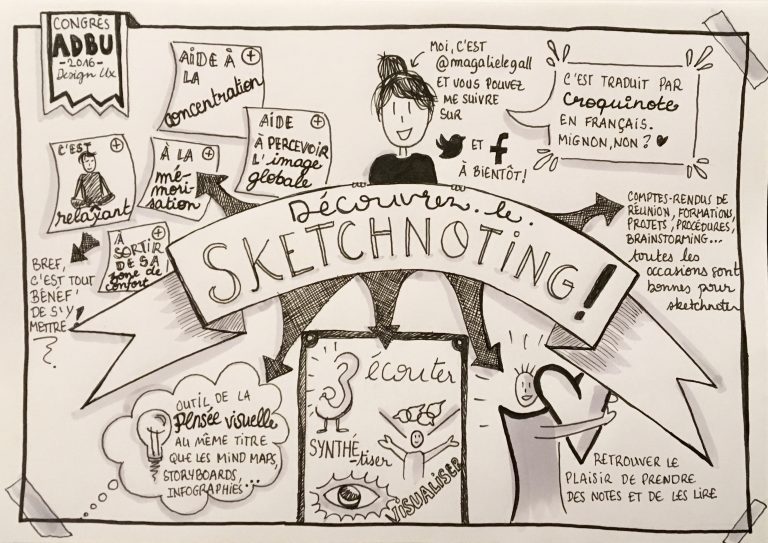 CONGRÈS
ADBU
-2016-
Design Ux
AIDE À
LA
concentration
AIDE
À PERCEVOIR
L'image
globale
C'EST
relaxant
À LA
mé-
mori-
sation
À
SORTIR
DE SA
zone de
confort
BREF,
C'EST TOUT
BÉNEF'
DE S'Y
METTRE!
MOI, C'EST
@magalielegall
ET VOUS POUVEZ
ME SUIVRE
SUR
ET
À BIENTÔT!
C'EST TRADUIT PAR
Croquinote
EN FRANÇAIS.
MIGNON, NON? ♥
Découvrez le
SKETCHNOTING!
COMPTES-RENDUS DE
RÉUNION, FORMATIONS,
PROJETS, PROCÉDURES,
BRAINSTORMING...
toutes les
occasions sont
bonnes pour
sketchnoter
OUTIL DE LA
pensée visuelle
AU MÊME TITRE
QUE LES MIND MAPS,
STORYBOARDS,
INFOGRAPHIES...
écouter
SYNTHÉ
-tiser
VISUALISER
RETROUVER LE
PLAISIR DE PRENDRE
DES NOTES ET DE LES LIRE